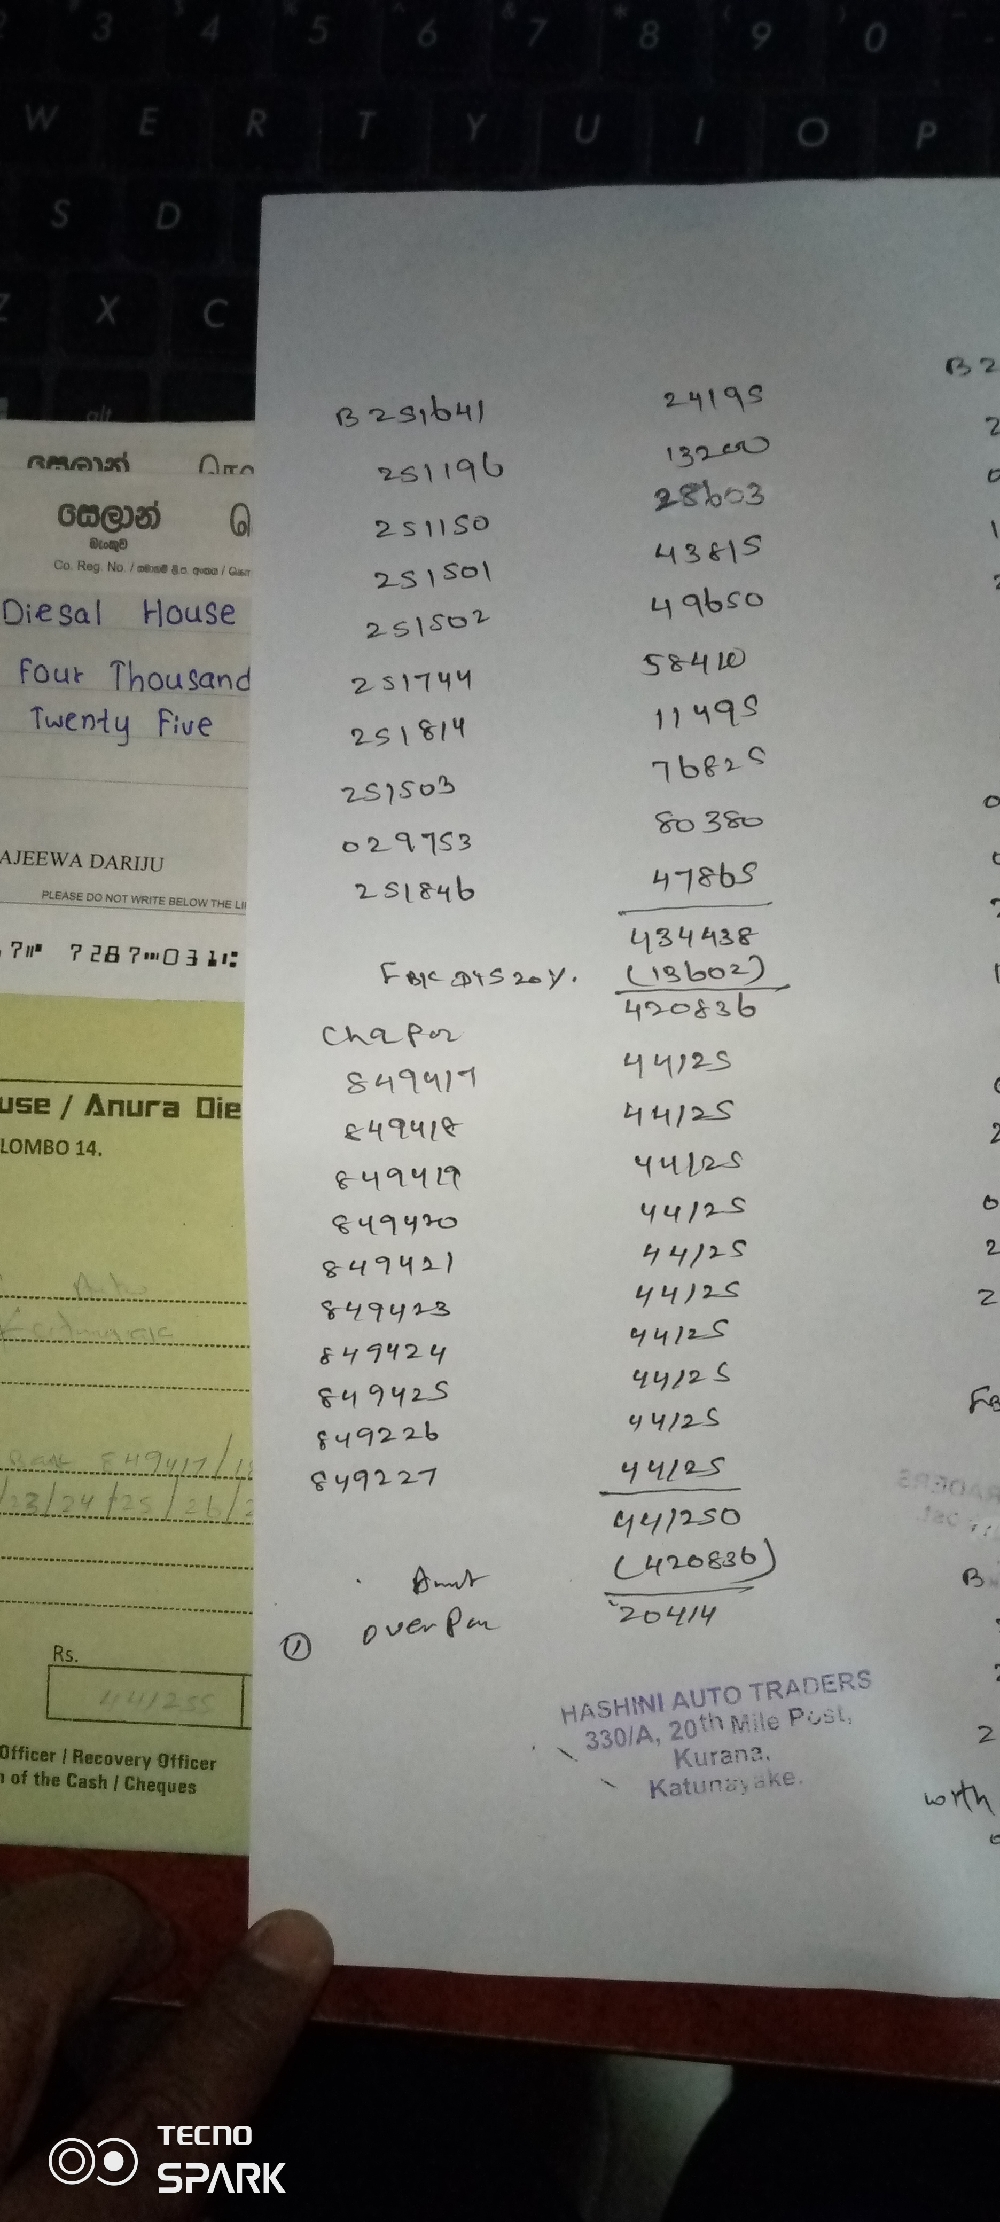 3 4 5 6 7 8 9 0
W E R T Y U I O P
S D
Z X C
alt
සෙලාන්
සෙලාන්
බැංකුව
Co. Reg. No. /
Diesal House
Four Thousand
Twenty Five
AJEEWA DARIJU
PLEASE DO NOT WRITE BELOW THE LI
7287
use / Anura Die
LOMBO 14.
Auto
849417/18
/23/24/25/26/2
Rs.
441255
Officer / Recovery Officer
n of the Cash / Cheques
B 251641 24195
251196 13200
251150 28603
251501 43815
251502 49650
251744 58410
251814 11495
251503 76825
029753 80380
251846 47865
434438
(13602)
420836
849417 44125
849418 44125
849419 44125
849420 44125
849421 44125
849423 44125
849424 44125
849425 44125
849226 44125
849227 44125
441250
(420836)
① over 20414
HASHINI AUTO TRADERS
330/A, 20th Mile Post,
Kurana,
Katunayake.
B 2
2
2
2
2
B
2
worth
TECNO
SPARK